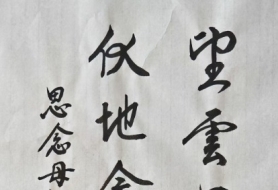 望雲
伏地念
思念母